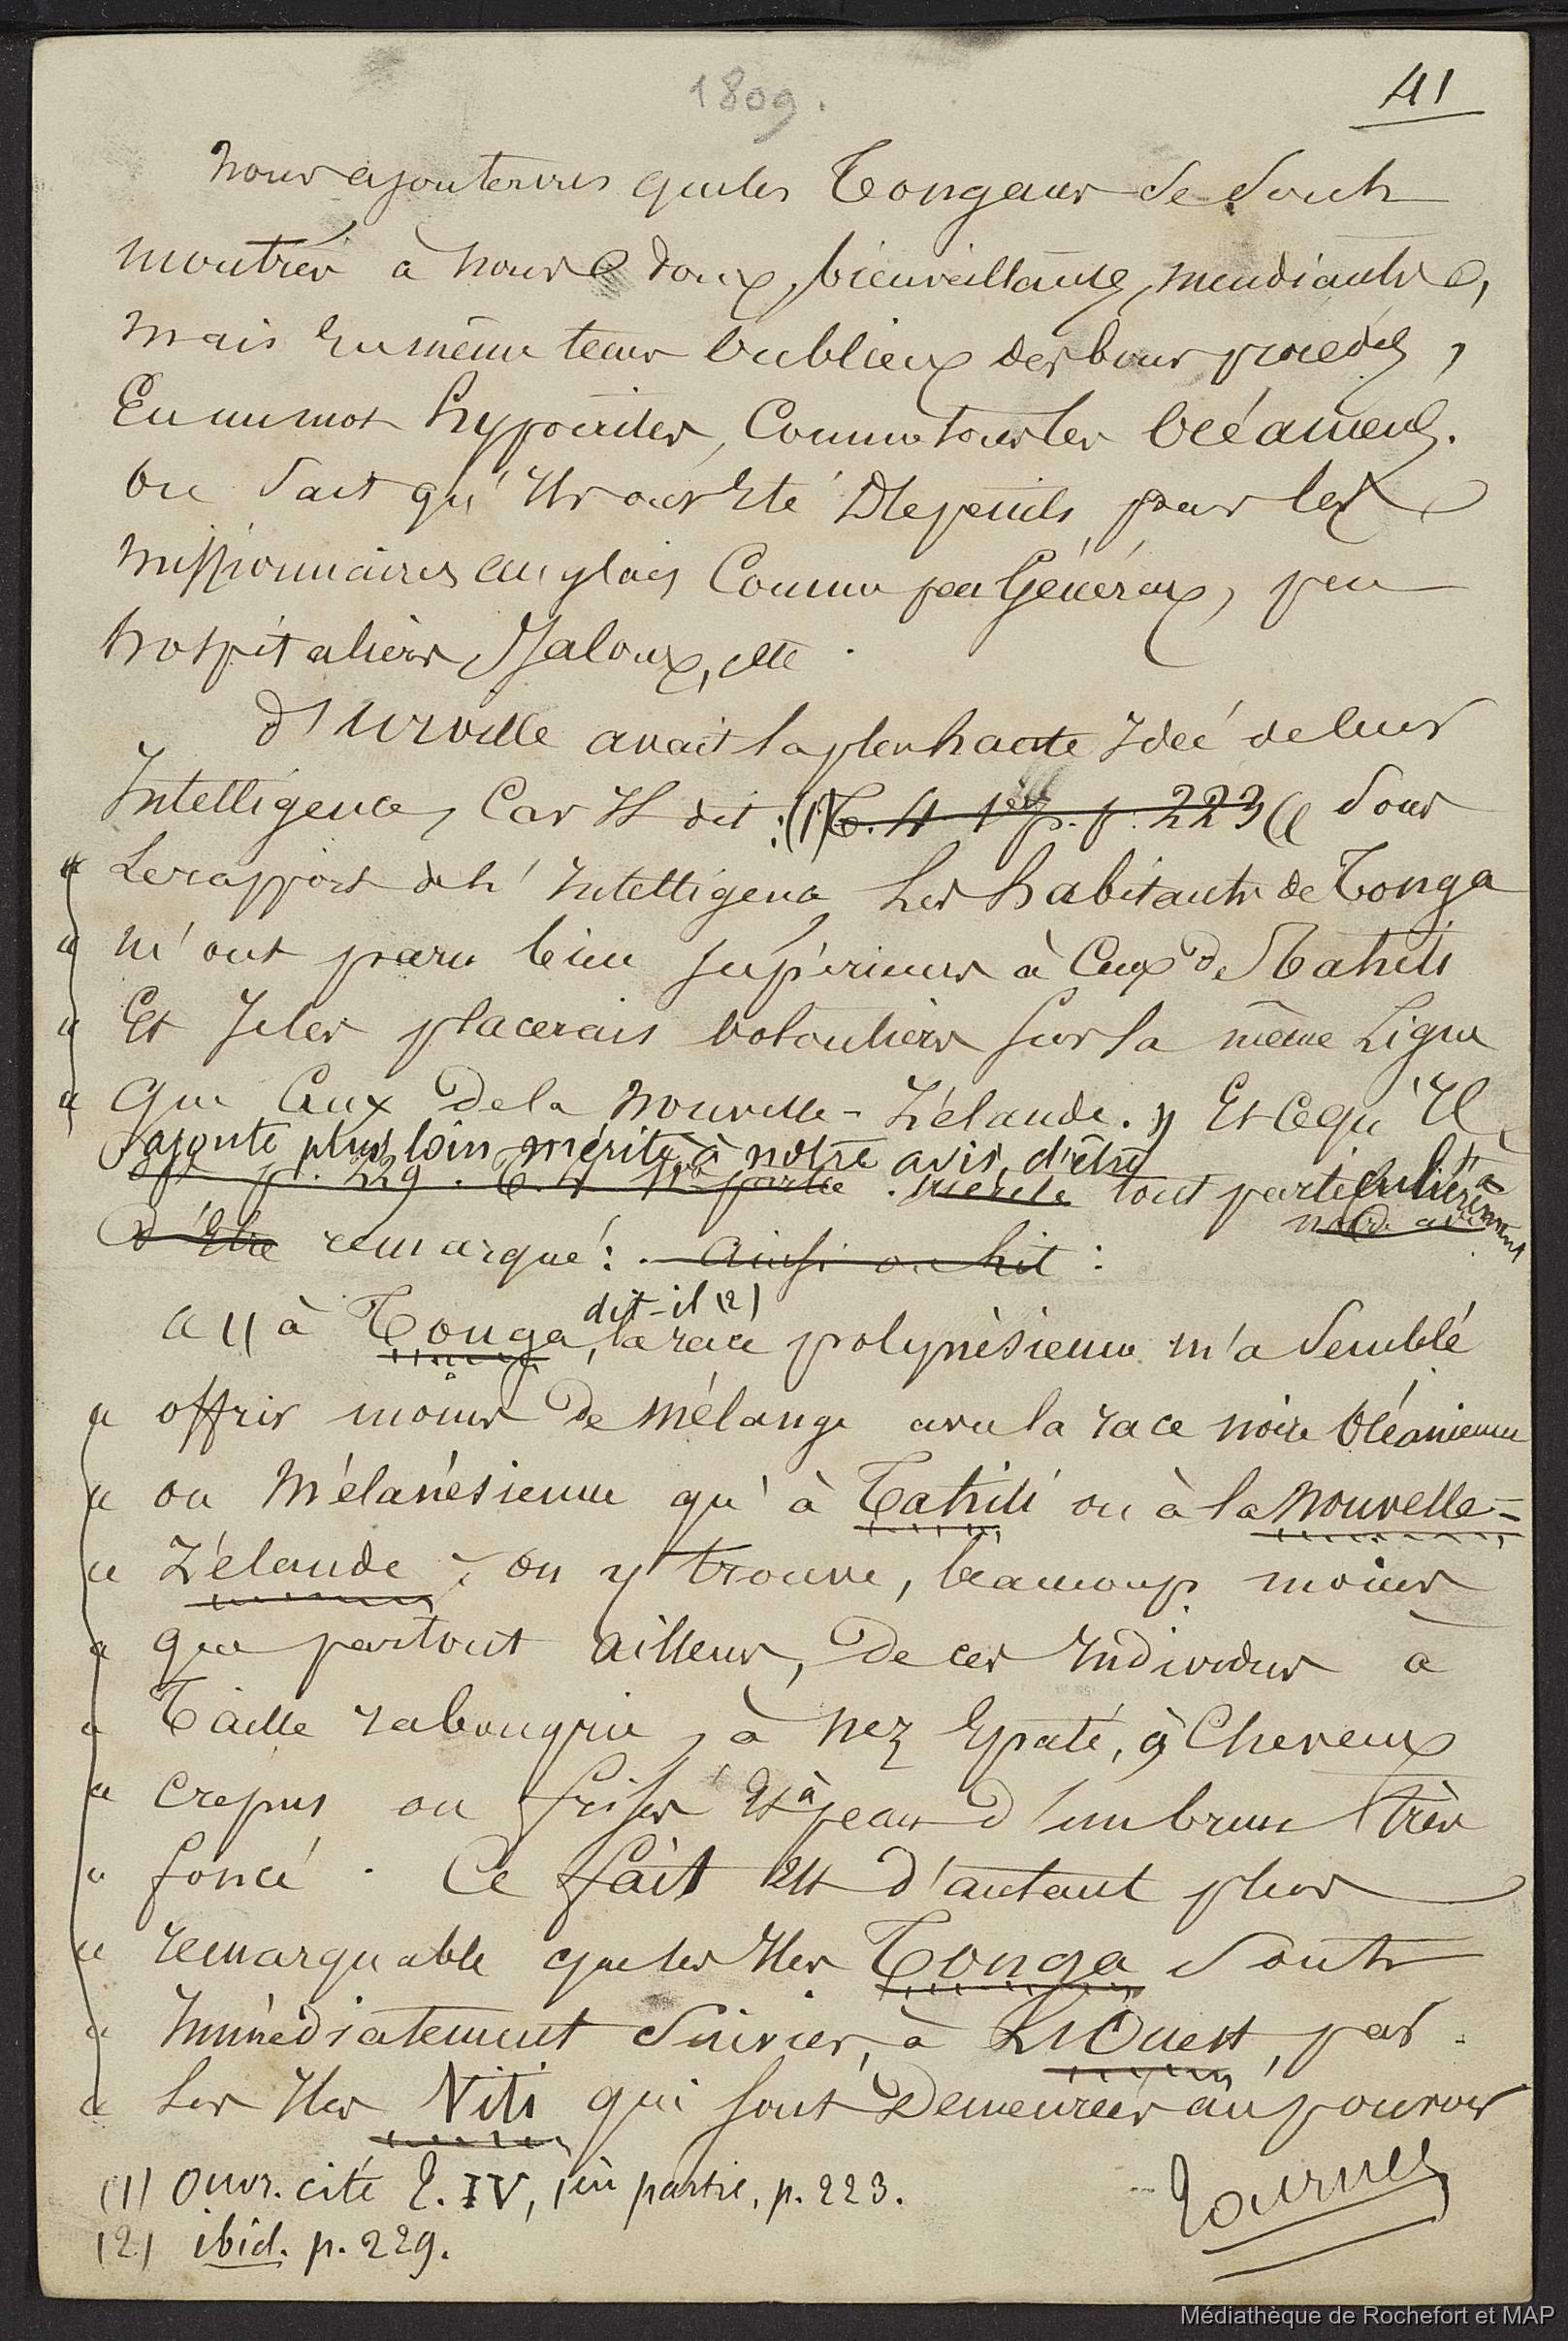 1809.
41
nous ajouterons que les Tongans se sont
montrés à nous doux, bienveillants, mendiants,
mais en même tems oublieux des bons procédés,
En un mot hypocrites, Comme tous les Océaniens.
on sait qu'Ils ont Eté Dépeints par les
missionnaires anglais Comme peu Généreux, peu
hospitaliers, Jaloux, etc.
d'urville avait la plus haute Idée de leur
Intelligence, Car Il dit : (1) T. 4 1re p. p. 223 « Sous
« Le rapport de l'Intelligence Les habitants de Tonga
« m'ont paru bien supérieurs à Ceux de Tahiti
« Et Je les placerais volontiers sur la même Ligne
« Que Ceux De la Nouvelle-Zélande. » Et Ce qu'Il
ajoute plus loin mérite à notre avis, d'être
p. 229. T. 4 1re partie. mérite tout particulièrement
à notre avis
d'Etre remarqué : Ainsi on lit :
« à Tonga, dit-il (2) la race polynésienne m'a Semblé
« offrir moins De mélange avec la race noire Océanienne
« ou Mélanésienne qu'à Tahiti ou à la Nouvelle-
« Zélande ; on y trouve, beaucoup moins
« que partout ailleurs, De ces Individus à
« Taille rabougrie, à nez Epaté, à Cheveux
« crepus ou frisés Et à peau d'un brun très
« foncé. Ce fait Est d'autant plus
« remarquable que les Iles Tonga Sont
« Immédiatement Suivies, à L'Ouest, par
« Les Iles Viti qui sont Demeurées au pouvoir
(1) Ouvr. cité T. IV, 1ère partie, p. 223.
(2) ibid. p. 229.
Tournez
Médiathèque de Rochefort et MAP